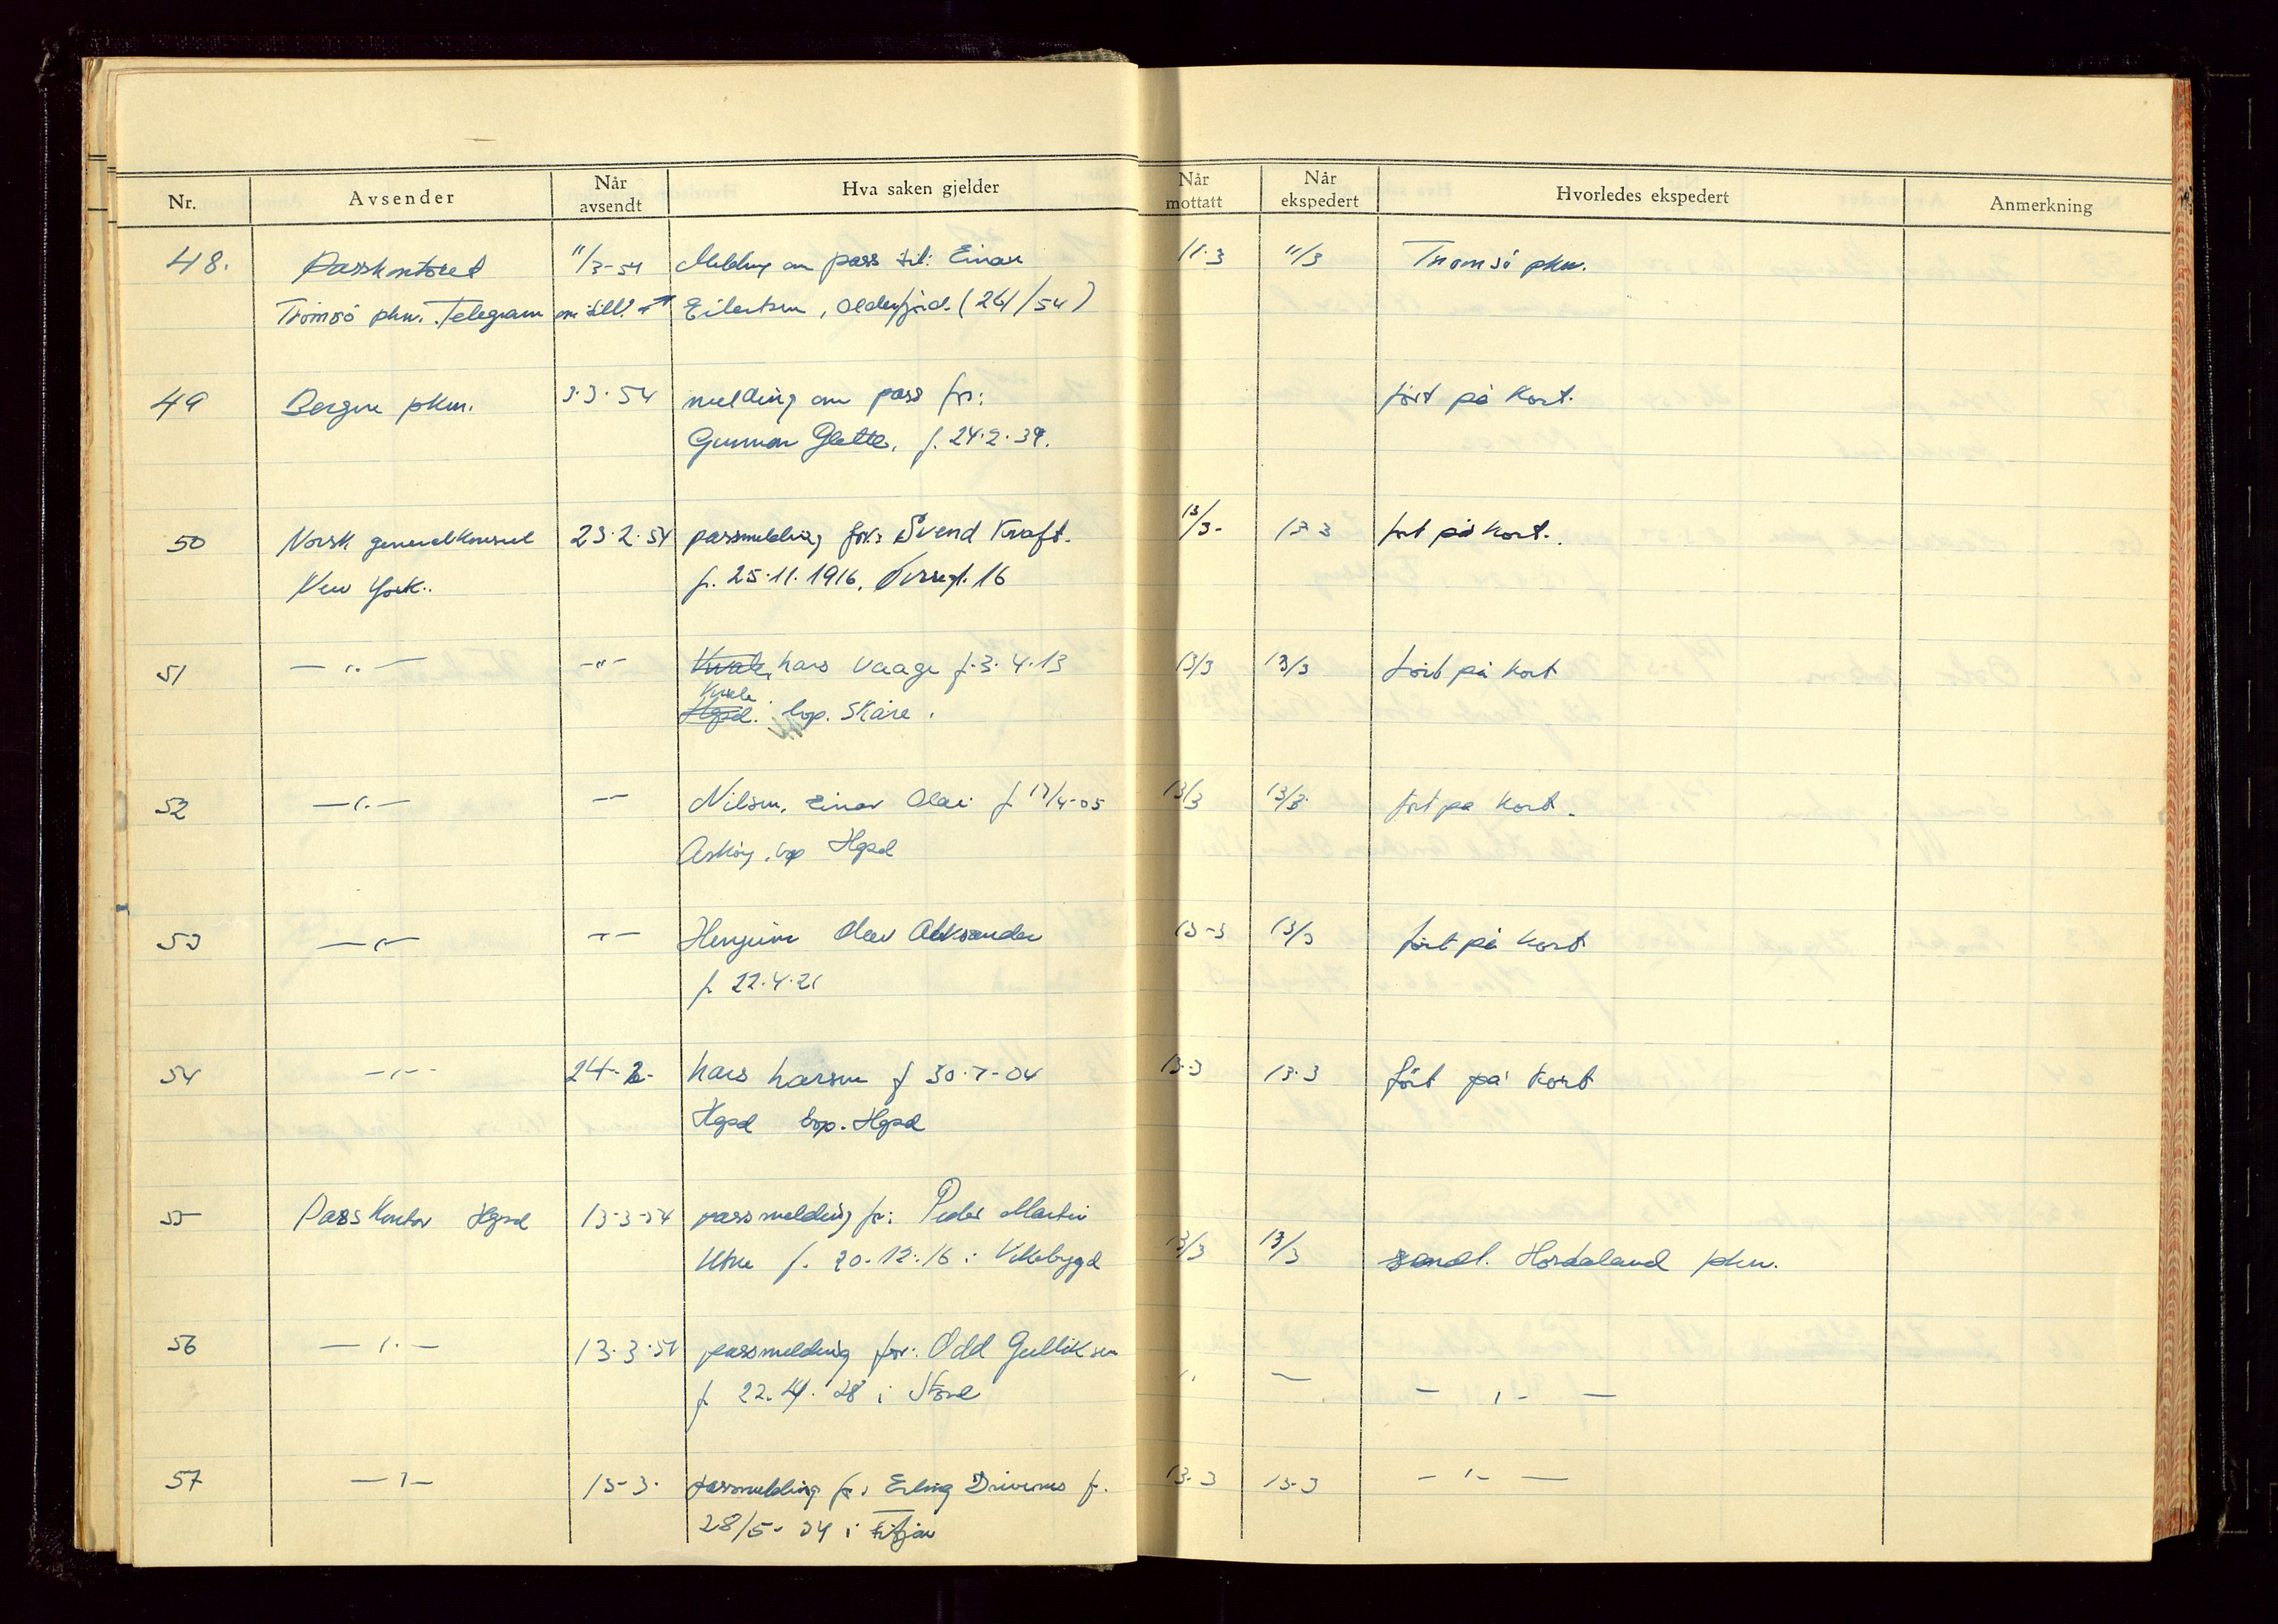 Nr. Avsender Når avsendt Hva saken gjelder Når mottatt Når ekspedert Hvorledes ekspedert Anmerkning
48. Passkontoret 11/3-54 Melding om pass til: Einar 11.3 11/3 Tromsö pkm.
Tromsö pkm. Telegram om till. Eilertsen, Olderfjord. (261/54)
49 Bergen pkm. 3.3.54 melding om pass for: ført på kort.
Gunnar Glette, f. 24.2.39.
50 Norsk generalkonsul 23.2.54 passmelding for: Svend Kraft. 13/3- 13 3 ført på kort.
New York. f. 25.11.1916,
51 — " — -"- Kvale, Lars Vaage f. 3.4.13 13/3 13/3 ført på kort
Kvale
Hgsd. bop. Skåre.
52 — " — -- Nilsen, Einar Olai f 17/4-05 13/3 13/3 ført på kort.
Askøy, bop Hgsd
53 — " — -- Olav Aleksander 13-3 13/3 ført på kort
f. 22.4.21
54 — " — 24-2- Lars Larsen f 30-7-04 13-3 13.3 ført på kort
Hgsd bop. Hgsd
55 Passkontor Hgsd 13-3-54 passmelding for: Peder Martin
f. 20.12.16 i Vikebygd 13/3 13/3 sendt. Hordaland pkm.
56 — " — 13.3.54 passmelding for: Odd Gulliksen
f. 22.4.28 i Stord " — — " —
57 — " — 13-3- passmelding for: Erling f. 13.3 13-3 — " —
28/5-34 i Fitjar